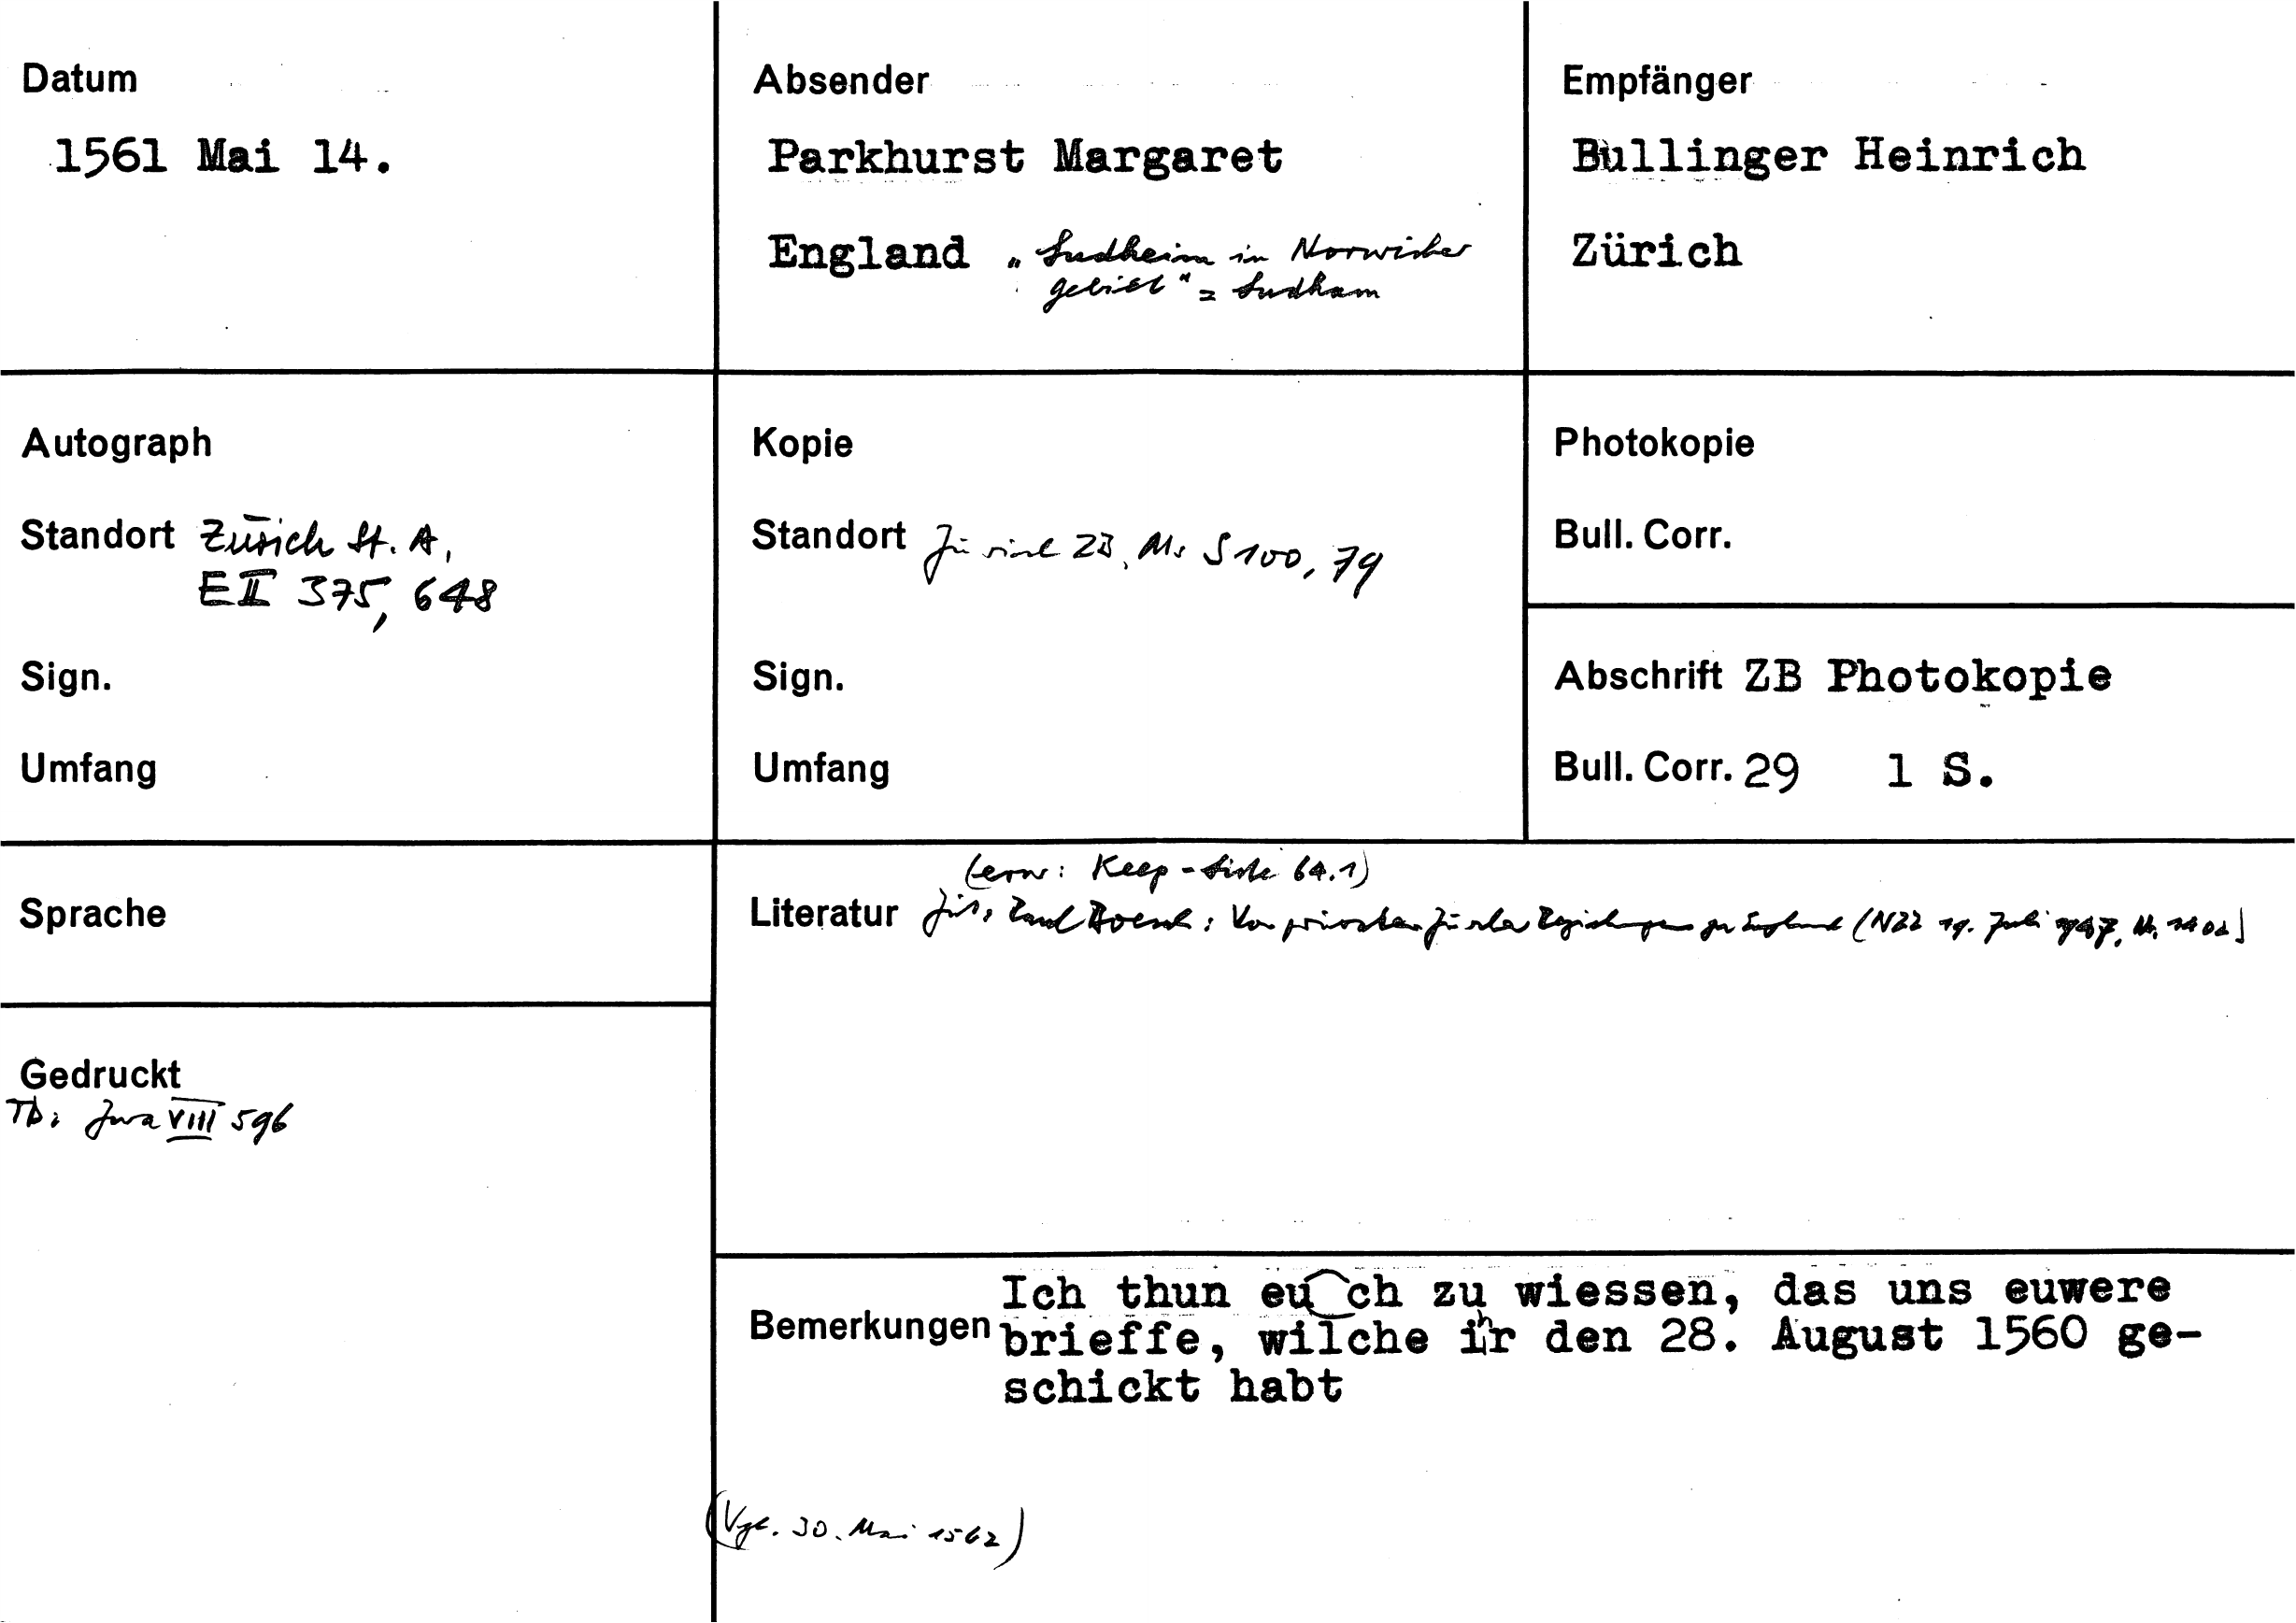 Datum
1561 Mai 14.
Absender
Parkhurst Margaret
England „Sudheim in Norwicher
gebiet" = Sudham
Empfänger
Bullinger Heinrich
Zürich
Autograph
Standort Zürich St. A,
E II 375, 648
Sign.
Umfang
Kopie
Standort Zürich ZB, Ms S 100, 79
Sign.
Umfang
Photokopie
Bull. Corr.
Abschrift ZB Photokopie
Bull. Corr. 29 1 S.
Sprache
Gedruckt
Jura VIII 596
(erw: Keep - 64.1)
Literatur Zit: Paul Boesch: Von privaten Zürcher Beziehungen zu England (NZZ 19. Juli 1947,
Bemerkungen
Ich thun euch zu wiessen, das uns euwere
brieffe, wilche ihr den 28. August 1560 ge-
schickt habt
(Vgl. 30. Mai 1562)